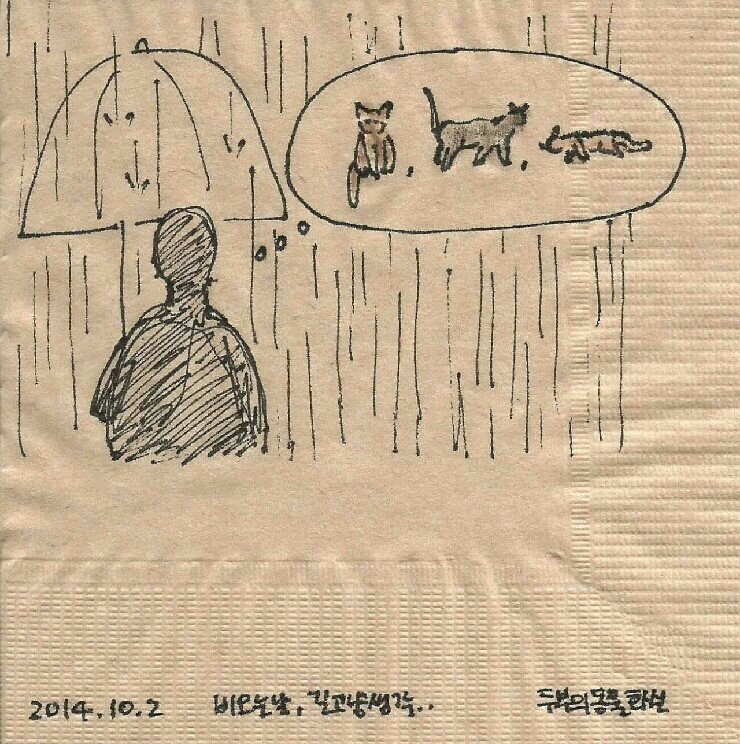 2014.10.2 비오는날, 길고냥생각.. 두부의동물화실